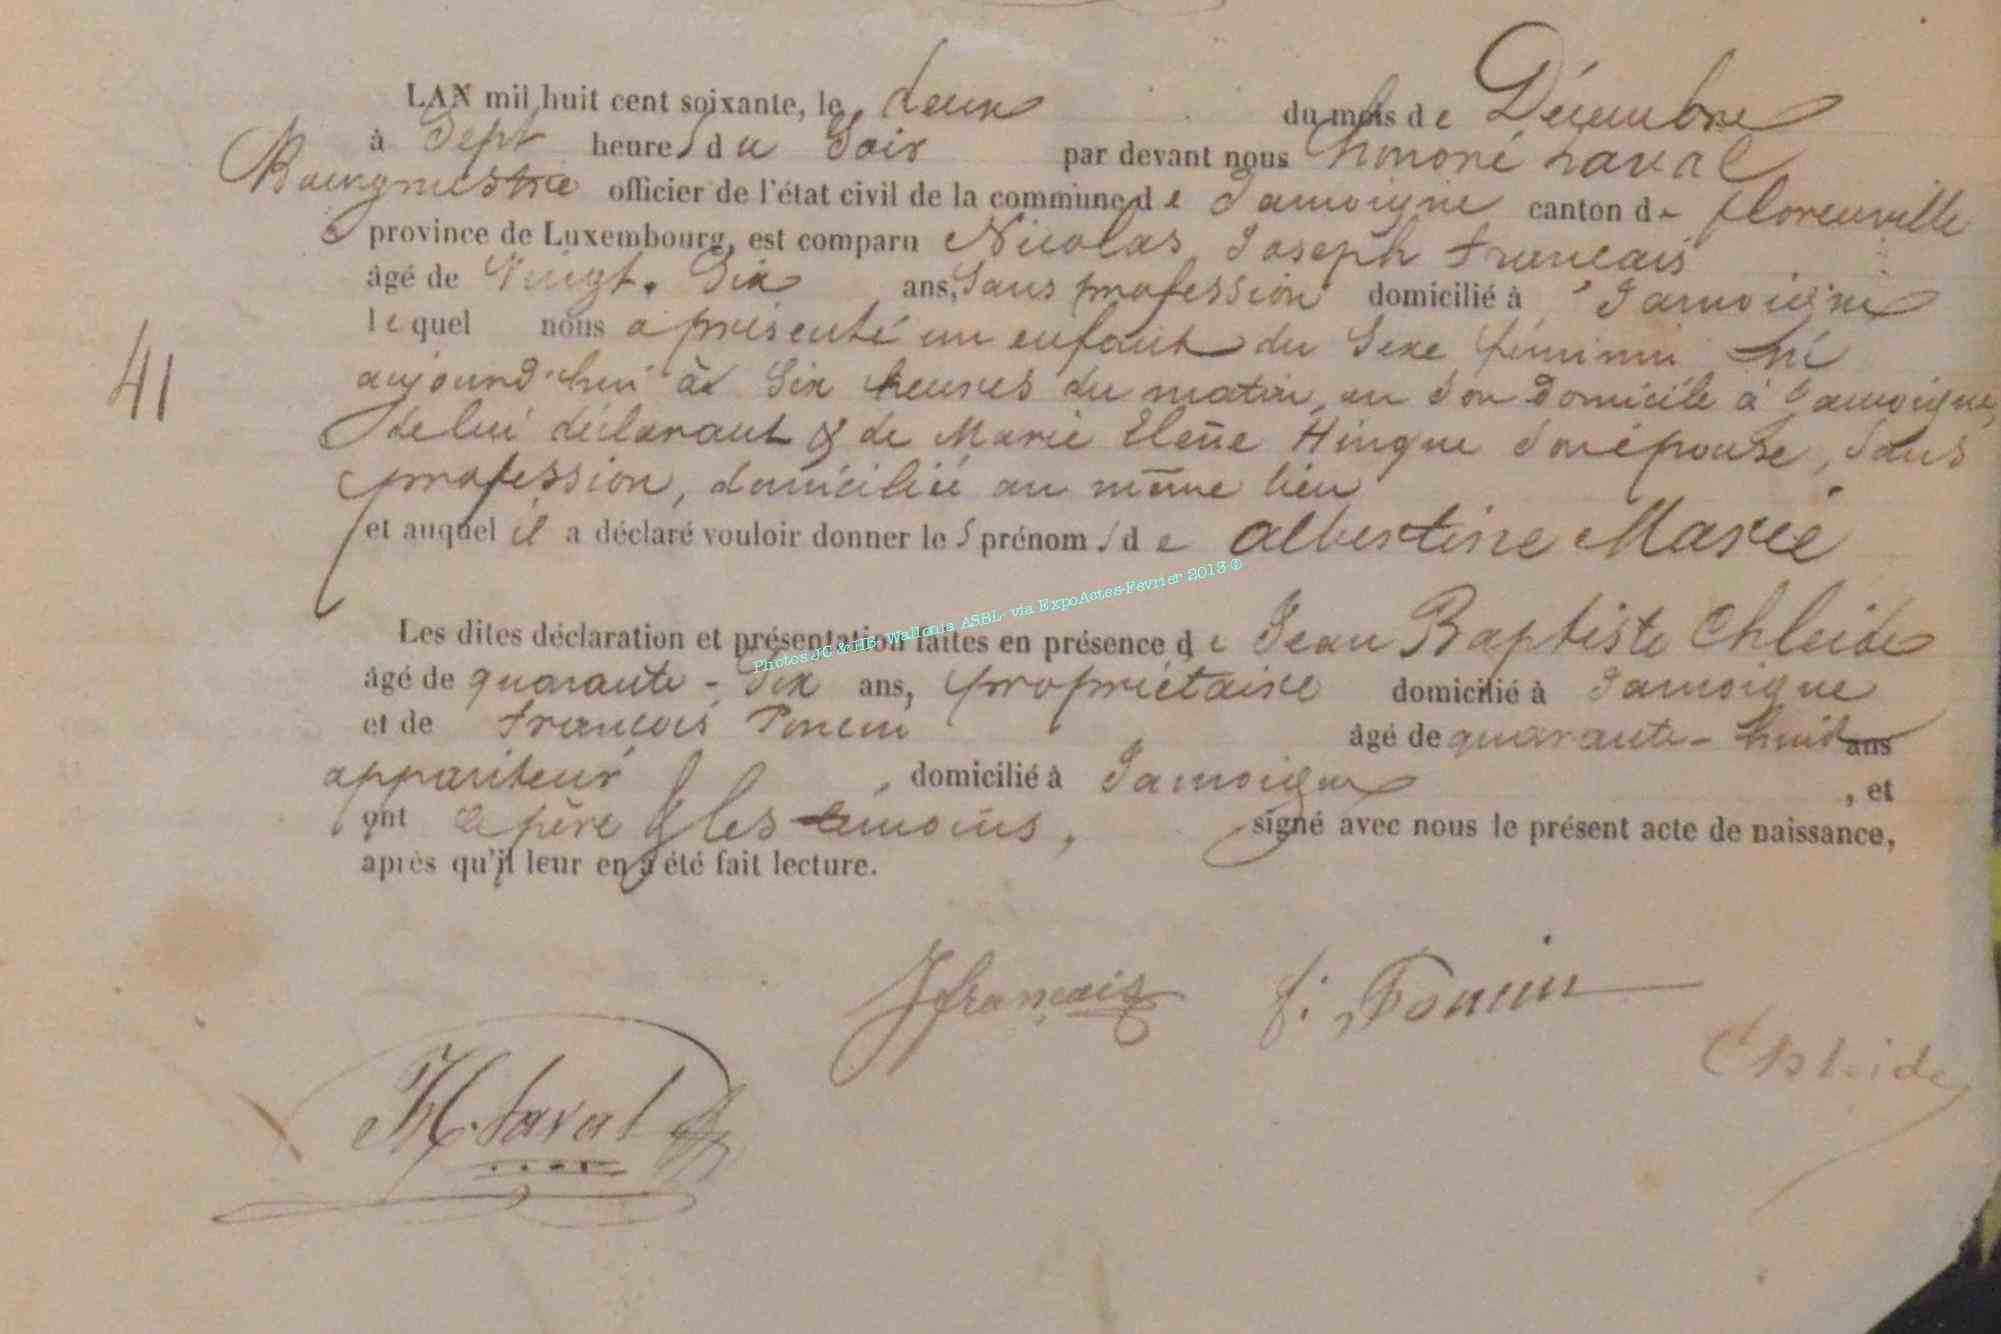 LAN mil huit cent soixante, le deux du mois de Décembre
à Sept heures du Soir par devant nous honoré Laval
Bourgmestre officier de l'état civil de la commune de Jamoigne canton de florenville
province de Luxembourg, est comparu Nicolas Joseph francais
âgé de Vingt-Six ans, Sans profession domicilié à Jamoigne
lequel nous a présenté un enfant du Sexe féminin né
aujourd'hui à Six heures du matin en Son Domicile à Jamoigne,
de lui déclarant & de Marie Elene Hinque Son épouse, Sans
profession, domiciliée au même lieu
et auquel il a déclaré vouloir donner les prénoms de albertine Marie
41
Les dites déclaration et présentation faites en présence de Jean Baptiste Chleide
âgé de quarante-Six ans, propriétaire domicilié à Jamoigne
et de françois Poncin âgé de quarante-huit ans
appariteur, domicilié à Jamoigne, et
ont le père & les témoins, signé avec nous le présent acte de naissance,
après qu'il leur en a été fait lecture.
Photos JC & HB- Wallonia ASBL- via ExpoActes-Février 2013 ®
Jfrançais
f: Poncin
Chleide
H. Laval